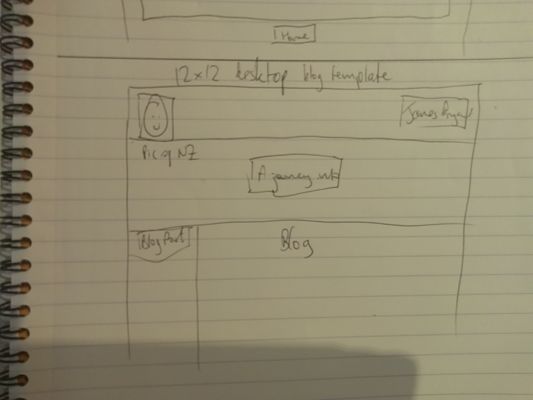 Home
12x12 desktop blog template
James
Pic of NZ
A journey into
Blog Posts
Blog